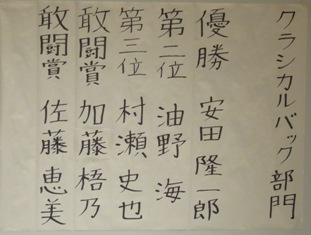 クラシカルバック部門
優勝 安田隆一郎
第二位 油野海
第三位 村瀬史也
敢闘賞 加藤梧乃
敢闘賞 佐藤恵美